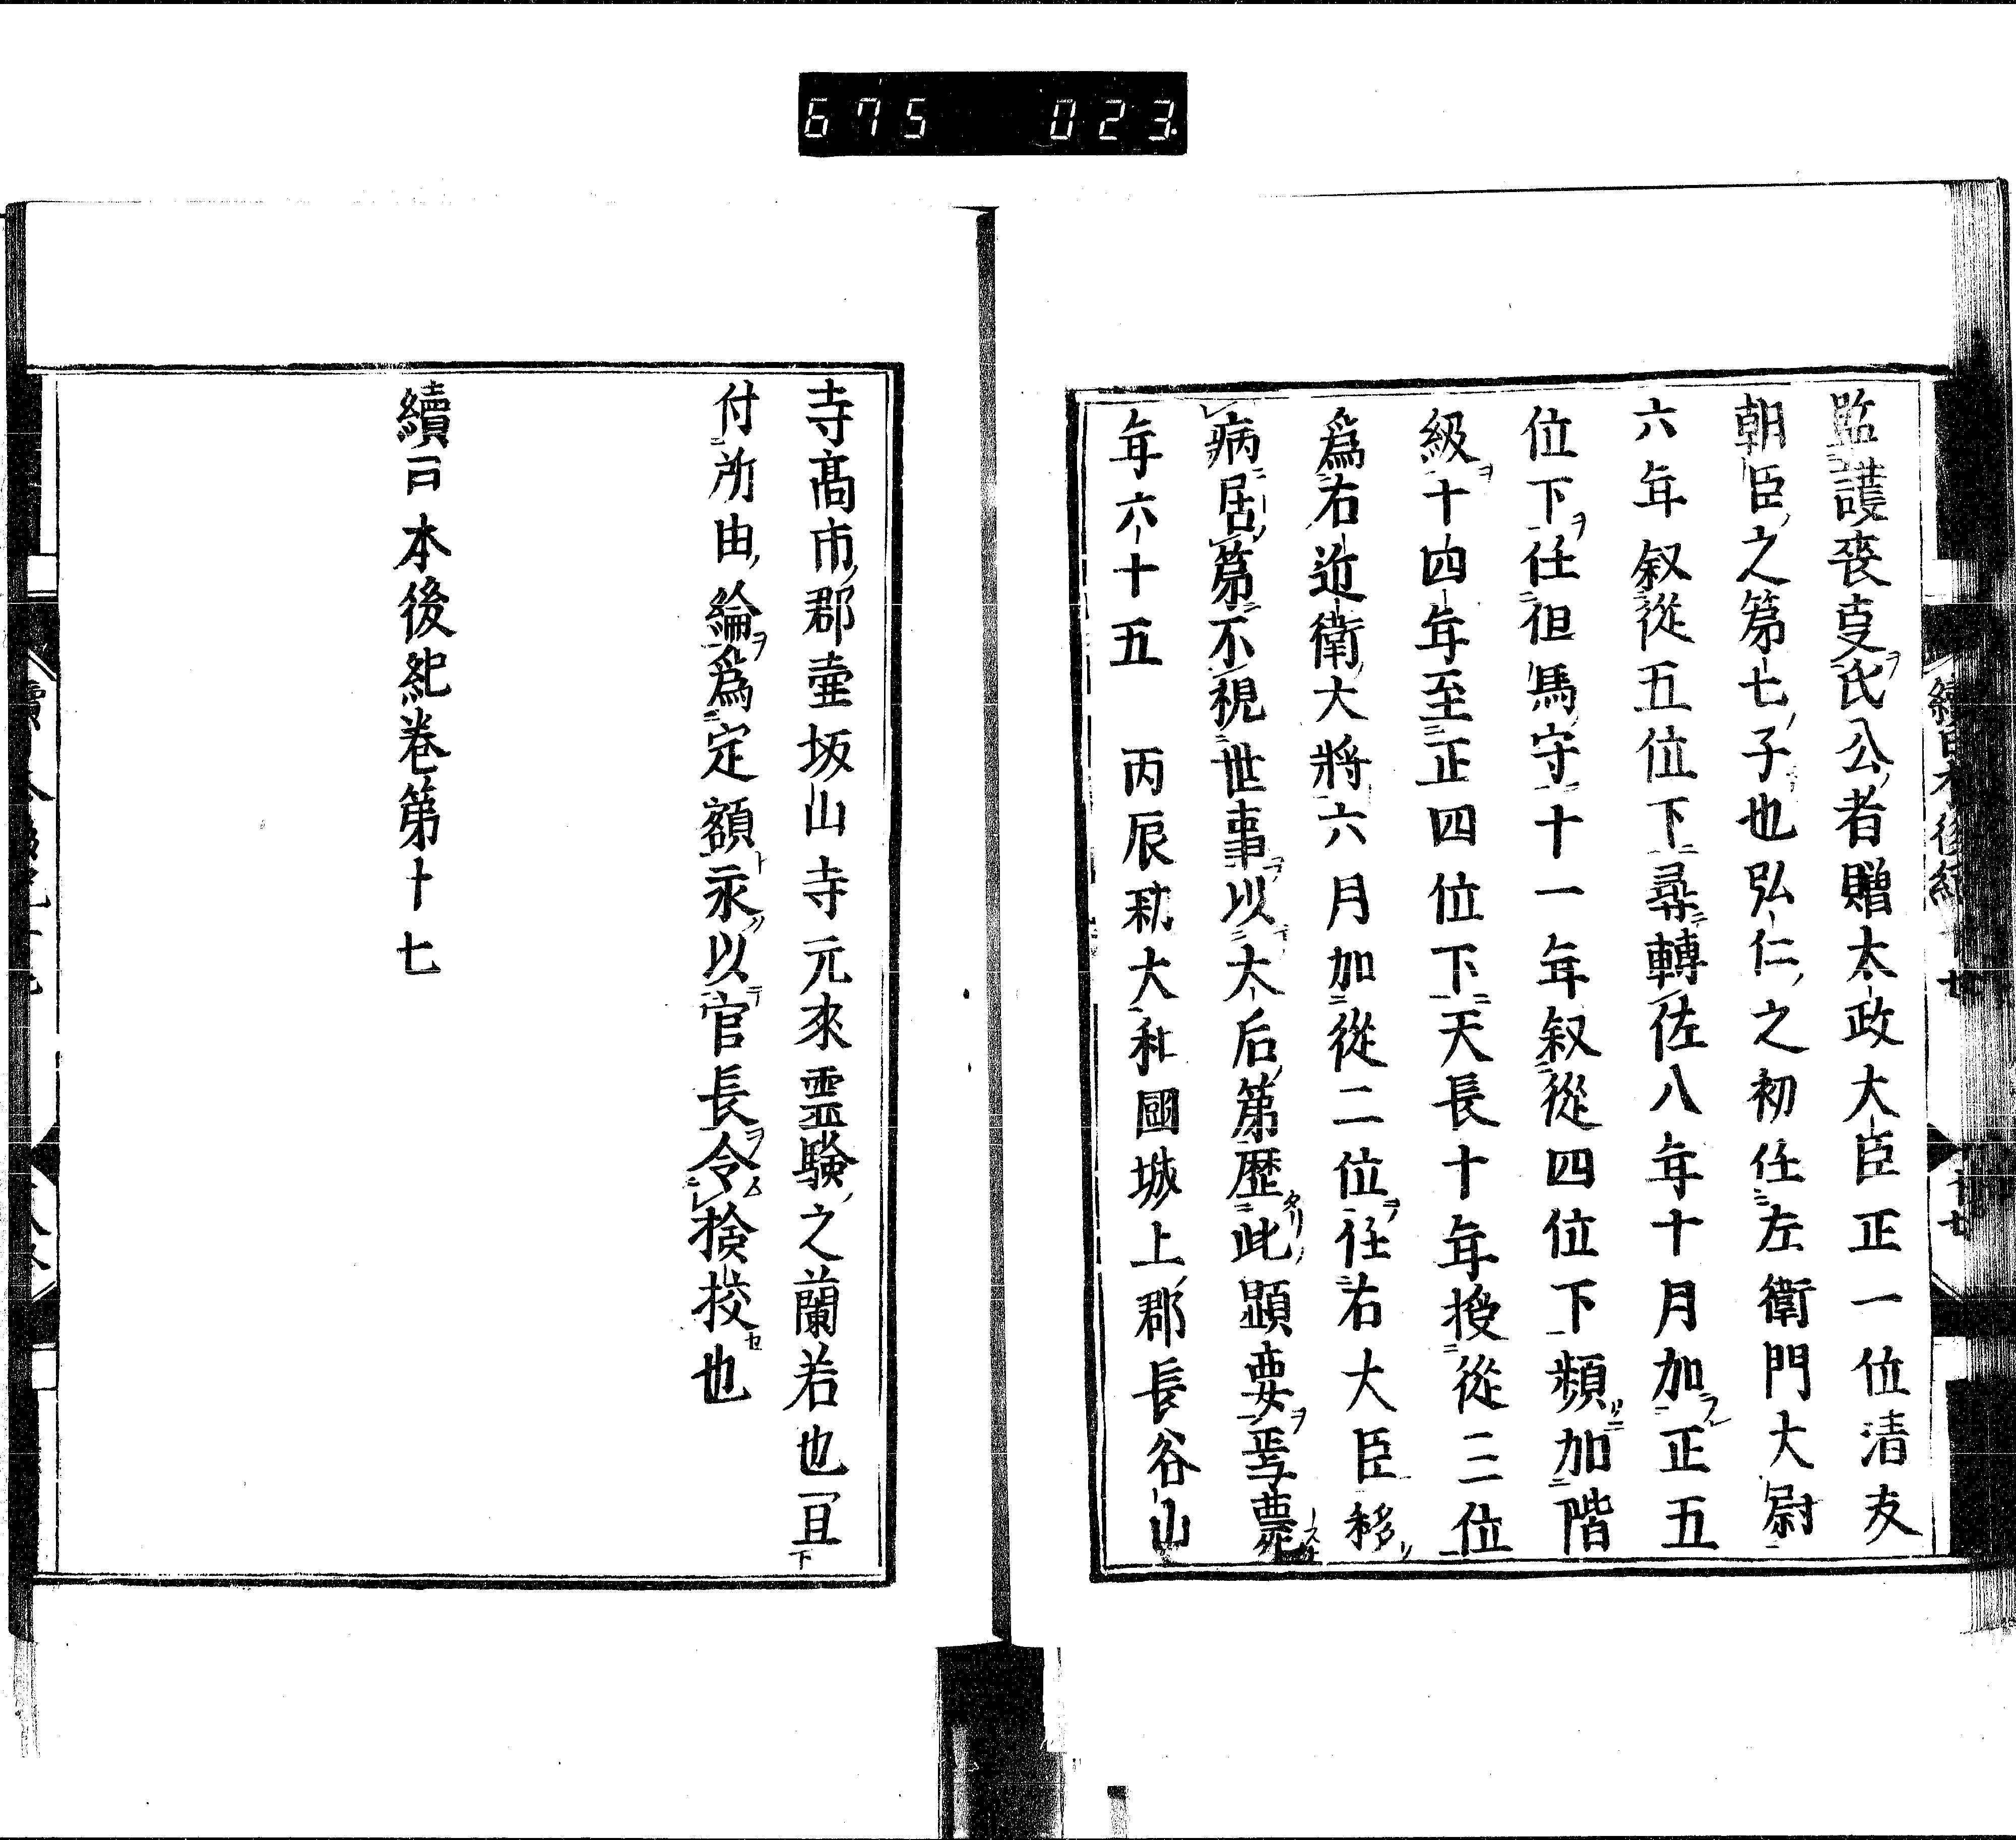 675 023
監護喪事氏公者贈太政大臣正一位清友
朝臣之第七子也弘仁之初任左衛門大尉
六年叙從五位下尋轉佐八年十月加正五
位下任但馬守十一年叙從四位下頻加階
級十四年至正四位下天長十年授從三位
爲右近衛大將六月加從二位任右大臣移
病居第不視世事以太后第歴此顕要焉薨
年六十五　丙辰勅大和國城上郡長谷山
寺髙市郡壷坂山寺元來霊驗之蘭若也冝
付所由綸爲定額永以官長令撿挍也
續日本後紀卷第十七